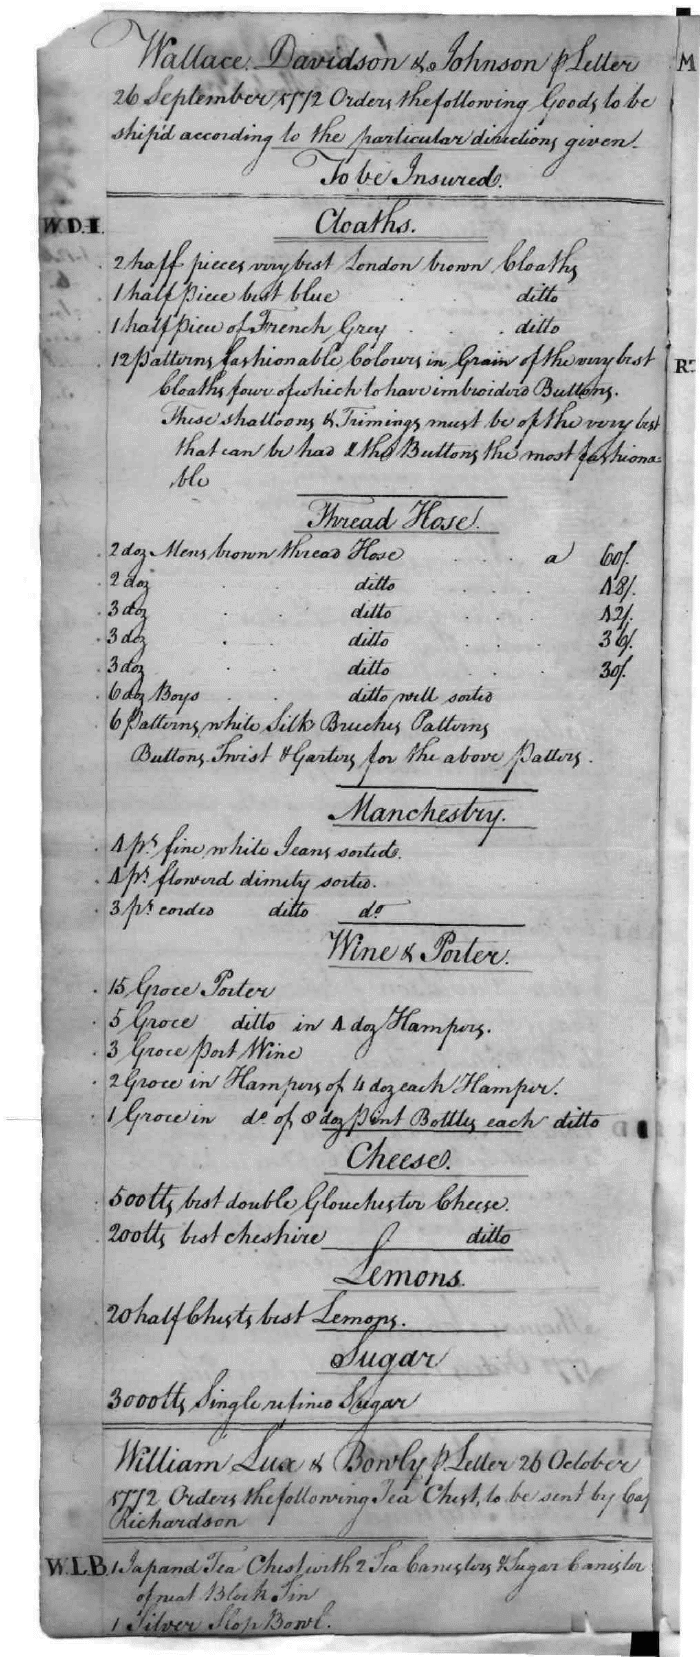 Wallace Davidson & Johnson p Letter
26 September 1772 Orders the following Goods to be
ship'd according to the particular directions given.
To be Insured.
W.D.I. Cloaths.
2 half pieces very best London brown Cloaths
1 half piece best blue ditto
1 half piece of French Grey ditto
12 patterns fashionable Colours in Grain of the very best
Cloaths four of which to have imbroidered Buttons.
These shalloons & Trimings must be of the very best
that can be had & the Buttons the most fashiona=
ble
Thread Hose.
2 doz Mens brown thread Hose a 60/.
2 doz ditto 48/.
3 doz ditto 42/.
3 doz ditto 36/.
3 doz ditto 30/.
6 doz Boys ditto well sorted
6 Patterns white Silk Breeches Patterns
Buttons Twist & Garters for the above Patterns.
Manchestry.
4 ps fine white Jeans sorted.
4 ps flowerd dimity sorted.
3 ps corded ditto do
Wine & Porter.
15 Groce Porter
5 Groce ditto in 4 doz Hampers.
3 Groce Port Wine
2 Groce in Hampers of 4 doz each Hamper.
1 Groce in do of 8 doz pint Bottles each ditto
Cheese.
500 lbs best double Glouchester Cheese.
200 lbs best cheshire ditto
Lemons.
20 half Chests best Lemons.
Sugar
3000 lbs Single refined Sugar
William Lux & Bowly p Letter 26 October
1772 Orders the following Tea Chest, to be sent by Cap
Richardson
W.L.B. 1 Japand Tea Chest with 2 Tea Canisters & Sugar Canister
of neat Block Tin
1 Silver Slop Bowl.
M
Rd